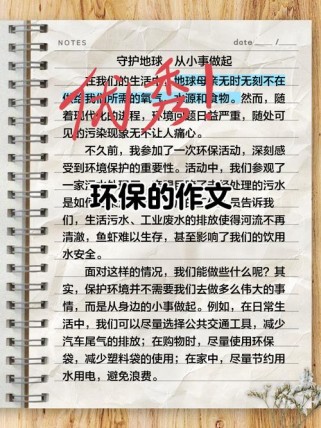 NOTES
date / /
守护地球，从小事做起
在我们的生活中，地球母亲无时无刻不在
给我们所需的氧气、水源和食物。然而，随
着现代化的进程，环境问题日益严重，随处可
见的污染现象无不让人痛心。
优秀！
不久前，我参加了一次环保活动，深刻感
受到环境保护的重要性。活动中，我们参观了
一家污水处理
处理的污水
是如
员告诉我
环保的作文
们，生活污水、工业废水的排放使得河流不再
清澈，鱼虾难以生存，甚至影响了我们的饮用
水安全。
面对这样的情况，我们能做些什么呢？其
实，保护环境并不需要我们去做多么伟大的事
情，而是从身边的小事做起。例如，在日常生
活中，我们可以尽量选择公共交通工具，减少
汽车尾气的排放；在购物时，尽量使用环保
袋，减少塑料袋的使用；在家中，尽量节约用
水用电，避免浪费。